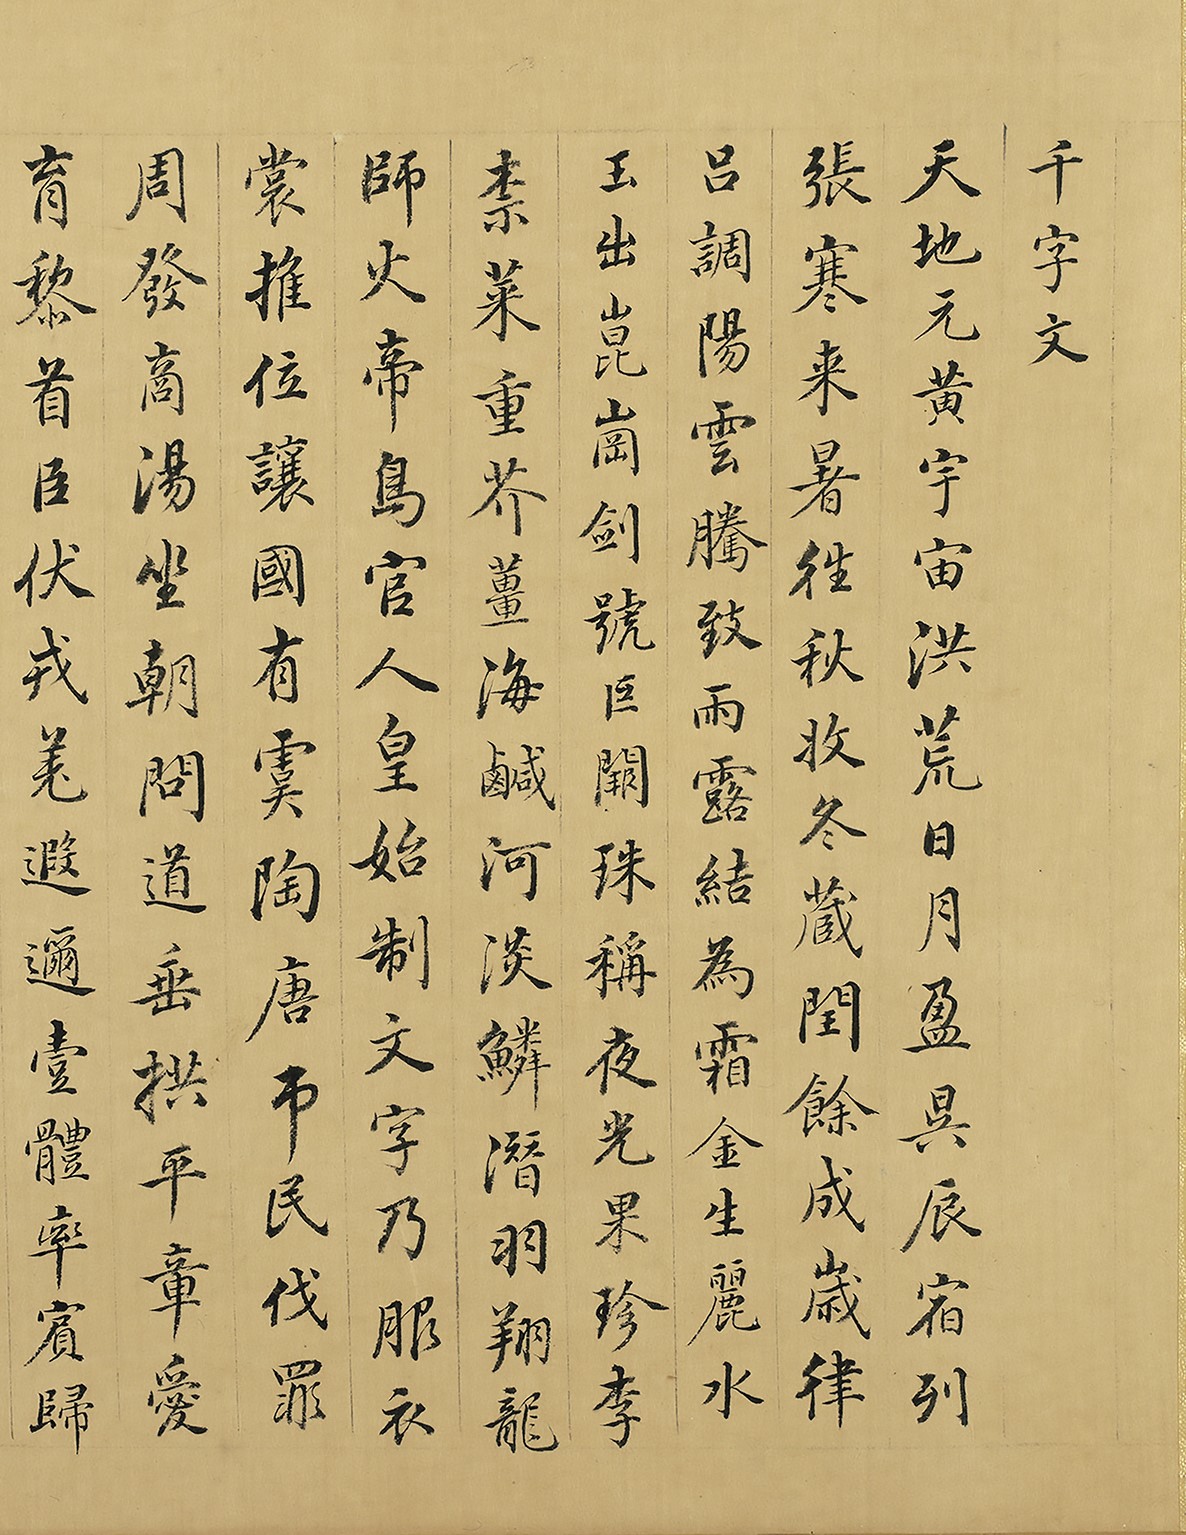 千字文
天地元黃宇宙洪荒日月盈昃辰宿列
張寒来暑往秋收冬蔵閏餘成歳律
呂調陽雲騰致雨露結為霜金生麗水
玉出崑崗劍號巨闕珠稱夜光果珍李
柰菜重芥薑海鹹河淡鱗潛羽翔龍
師火帝鳥官人皇始制文字乃服衣
裳推位讓國有虞陶唐弔民伐罪
周發商湯坐朝問道垂拱平章愛
育黎首臣伏戎羌遐邇壹體率賓歸